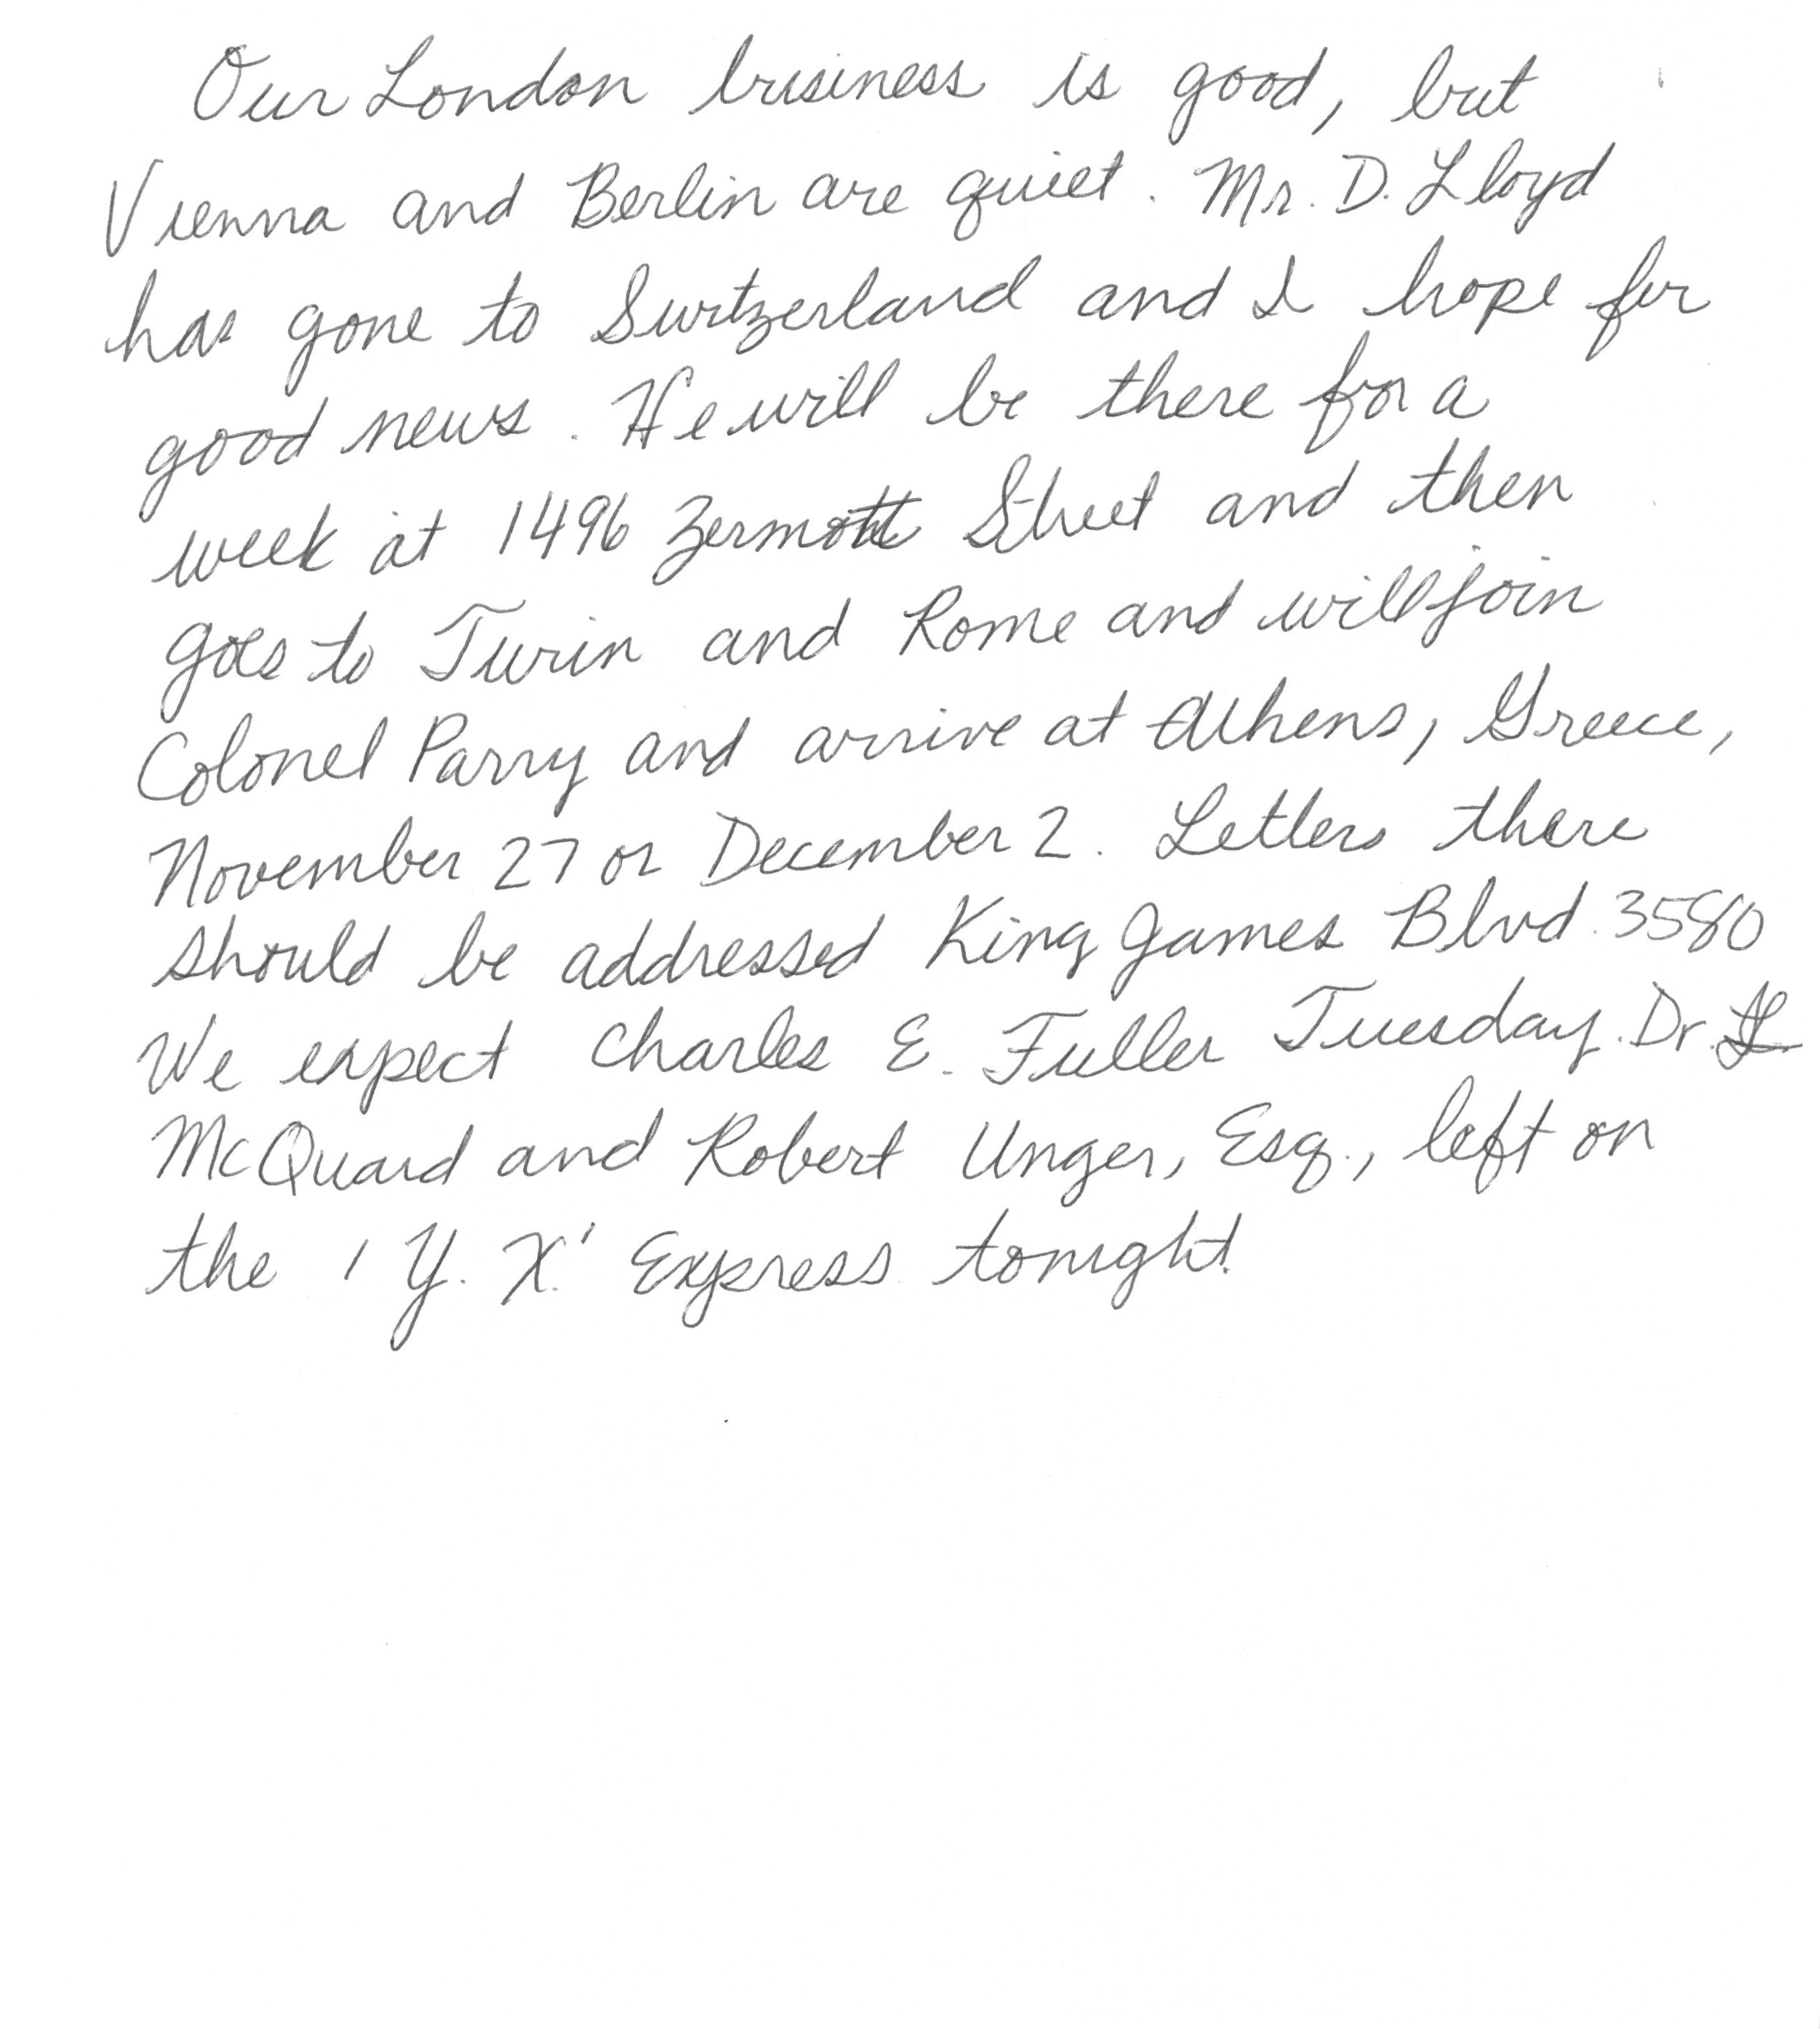 Our London business is good, but
Vienna and Berlin are quiet. Mr. D. Lloyd
has gone to Switzerland and I hope for
good news. He will be there for a
week at 1496 Zermott Street and then
goes to Turin and Rome and will join
Colonel Parry and arrive at Athens, Greece,
November 27 or December 2. Letters there
should be addressed King James Blvd. 3580
We expect Charles E. Fuller Tuesday. Dr. L.
McQuaid and Robert Unger, Esq., left on
the 'Y. X.' Express tonight.